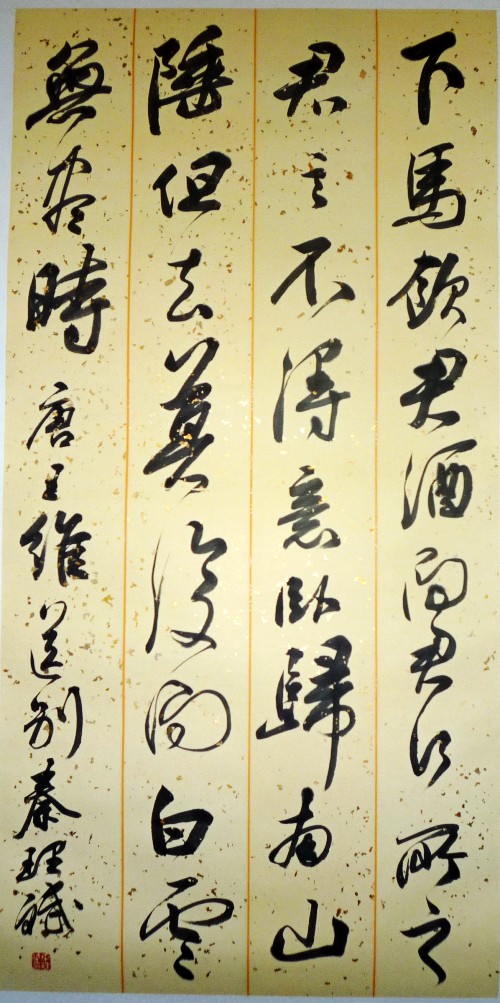 下馬飲君酒問君何所之
君言不得意臥歸南山
陲但去莫復問白雲
無盡時 唐王維送別 秦理